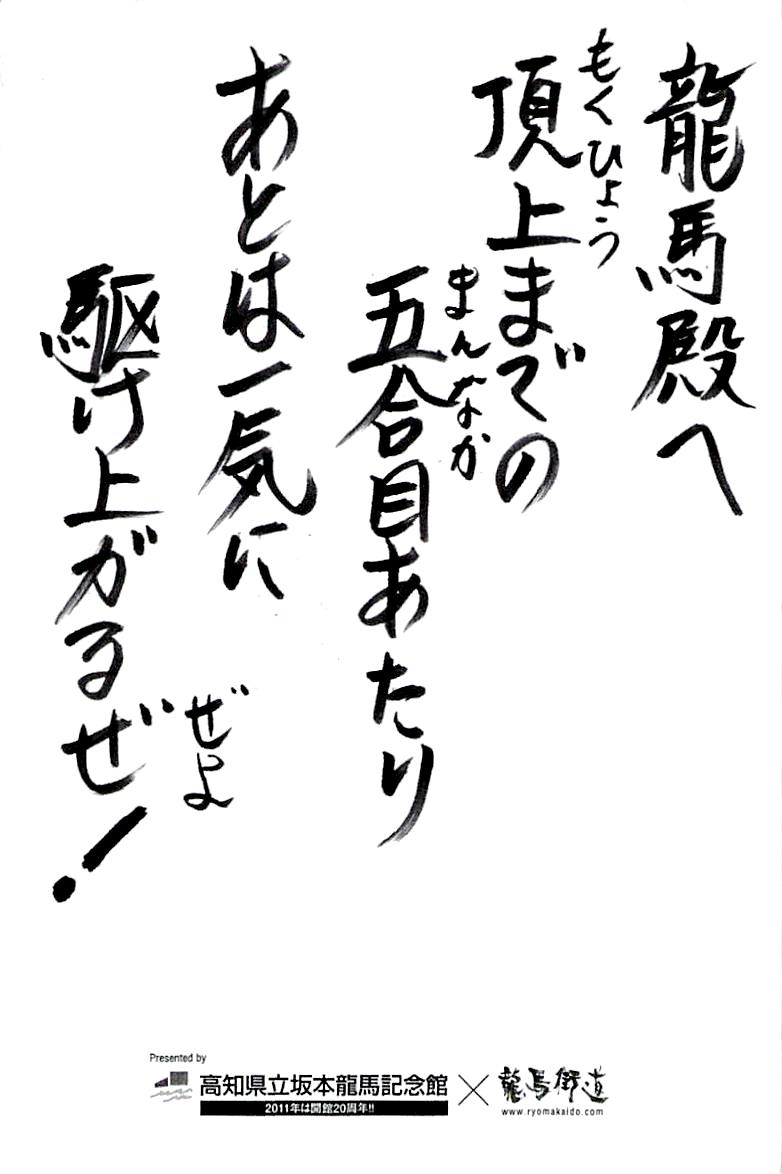 龍馬殿へ
もくひょう
頂上までの
まんなか
五合目あたり
あとは一気に
ぜよ
駆け上がるぜ!
Presented by
高知県立坂本龍馬記念館
2011年は開館20周年!!
×
龍馬街道
www.ryomakaido.com